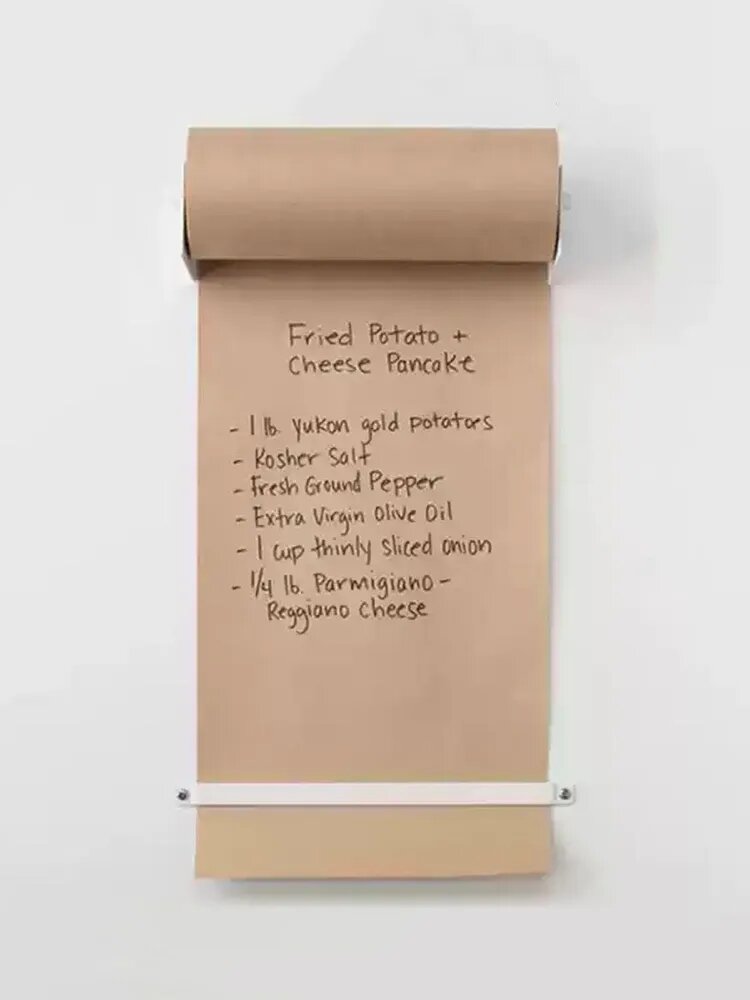 Fried Potato +
Cheese Pancake
- 1 lb. yukon gold potatoes
- Kosher Salt
- Fresh Ground Pepper
- Extra Virgin Olive Oil
- 1 cup thinly sliced onion
- 1/4 lb. Parmigiano-
Reggiano Cheese